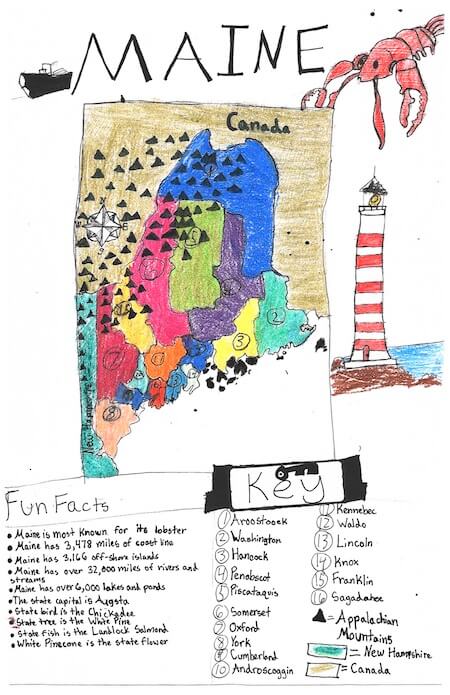 MAINE
Canada
New Hampshire
Fun Facts
• Maine is most known for its lobster
• Maine has 3,478 miles of coast line
• Maine has 3,166 off-shore islands
• Maine has over 32,000 miles of rivers and
streams
• Maine has over 6,000 lakes and ponds
• The state capital is Augsta
• State bird is the Chickadee
• State tree is the White Pine
• State fish is the Landlock Salmond
• White Pinecone is the state flower
Key
1 Aroostoock
2 Washington
3 Hancock
4 Penobscot
5 Piscataquis
6 Somerset
7 Oxford
8 York
Cumberland
10 Androscoggin
Kennebec
12 Waldo
13 Lincoln
14 Knox
15 Franklin
16 Sagadahoc
= Appalachian
Mountains
= New Hampshire
= Canada